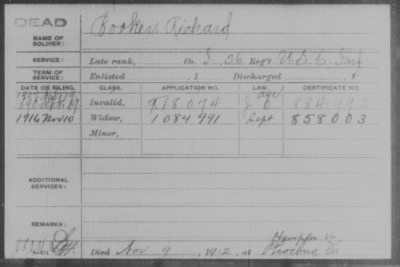 DEAD
NAME OF SOLDIER: Bookers Richard
SERVICE: Late rank, Co. I, 56 Reg't U.S.C. Inf
TERM OF SERVICE: Enlisted , 1 Discharged , 1
DATE OF FILING. CLASS. APPLICATION NO. LAW. CERTIFICATE NO.
Invalid, 978.074 884.995
1916 Nov 10 Widow, 1084991 Sept 858003
Minor,
ADDITIONAL SERVICES:
REMARKS:
Hampton Va
Died Nov 9, 191 , at Phoebus, Va